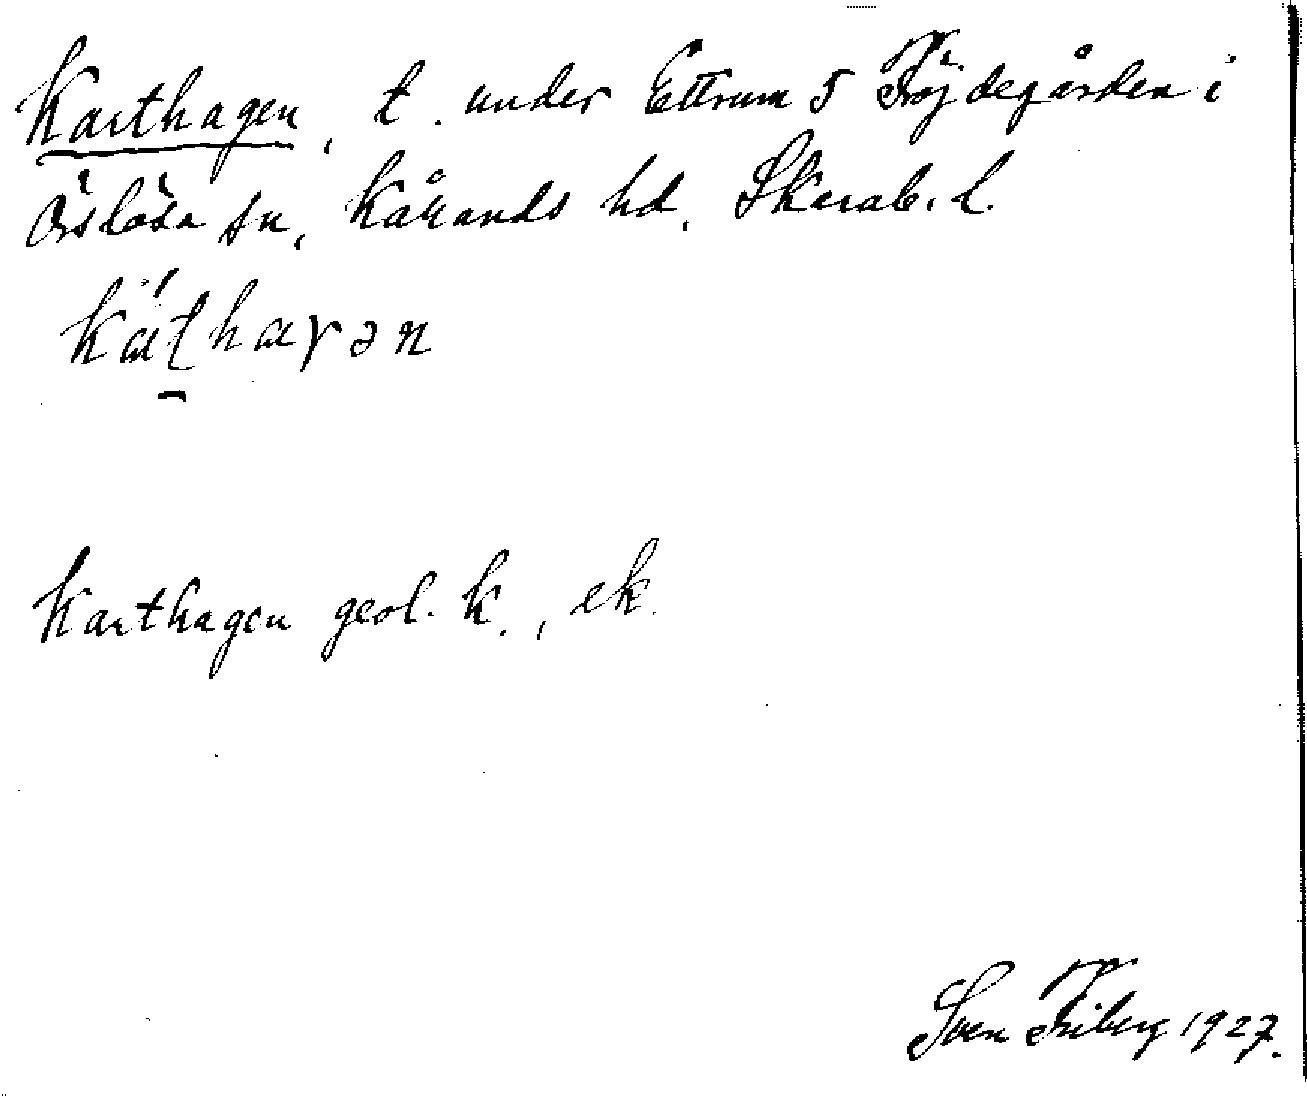 Karthagen, t. under Ettrum 5 Fröjdegården i
Öslösa sn, Kållands hd, Skarab. l.
Kaʈhaγən
Karthagen geol. k., ek.
Sven Friberg 1927.